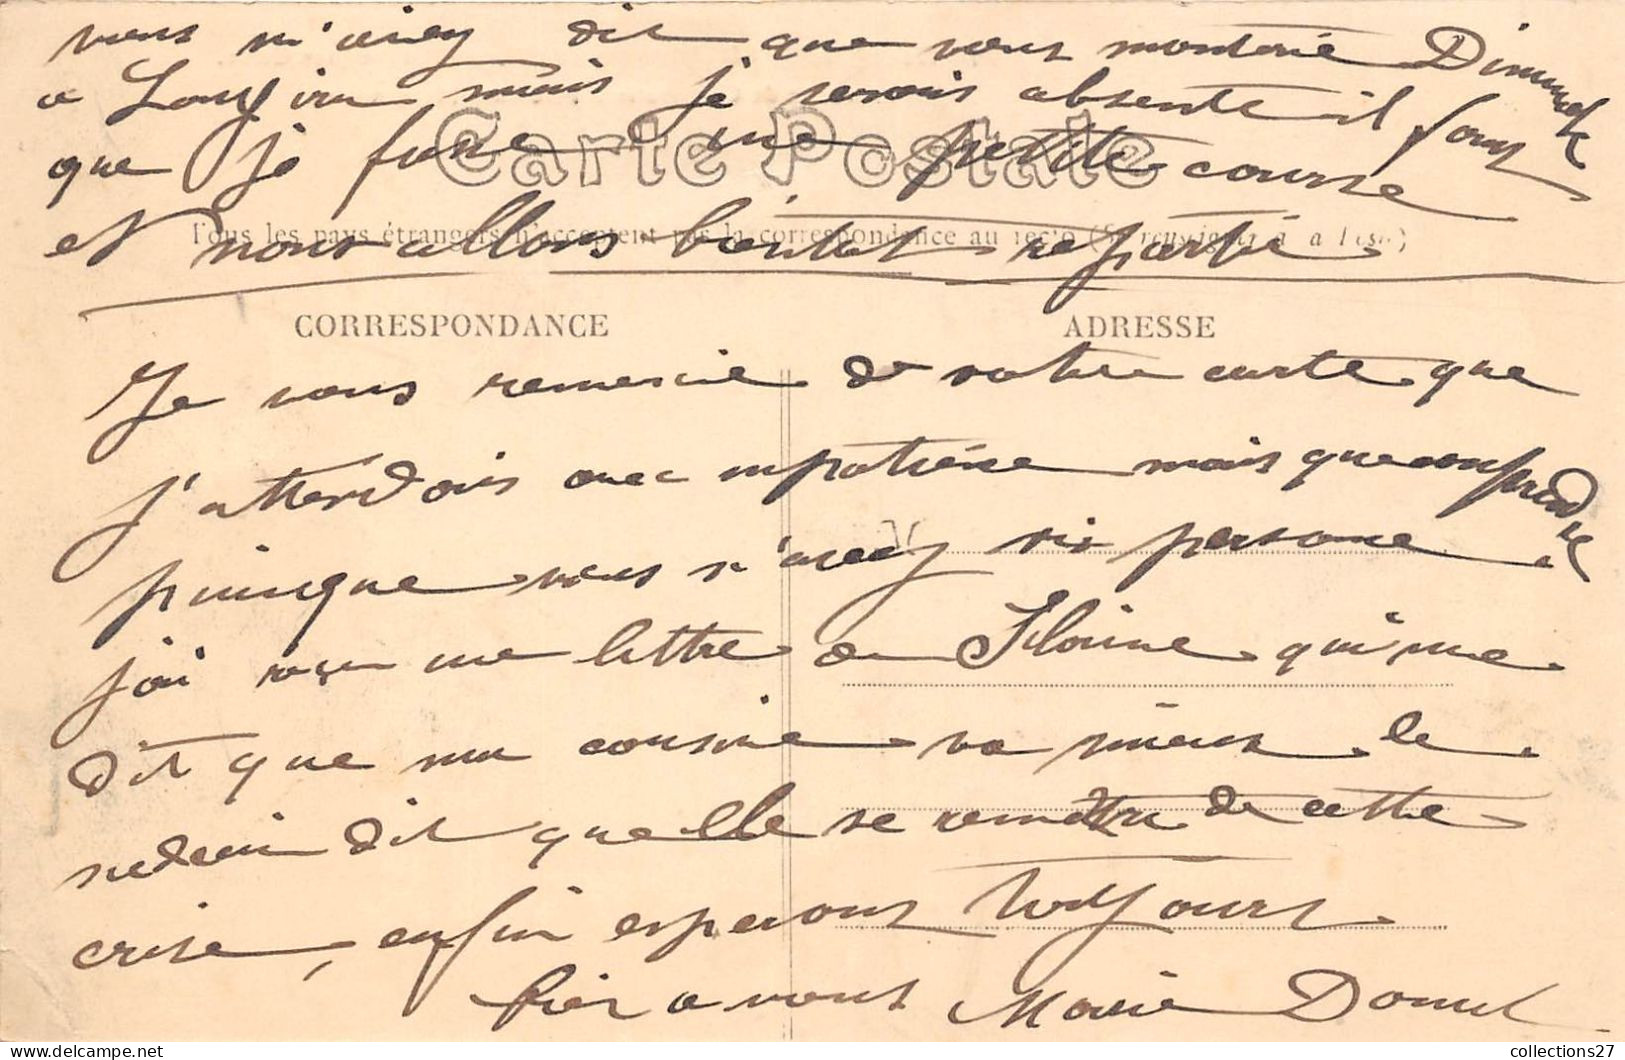 vous m'avez dit que vous monterié Dimmach
a Longiru mais je serais absente il faut
que je fasse une petite course
et nous allons bientot repartir
Carte Postale
Tous les pays étrangers n'acceptent pas la correspondance au recto (Se renseigner à la Poste)
CORRESPONDANCE
ADRESSE
Je vous remercie de votre carte que
j'attendais avec inpatience mais que comprendre
puisque vous n'avez vis persone
j'ai reçu une lettre de Floirine qui me
dit que ma cousine va mieux le
medecin dit quelle se remettra de cette
crise, enfin esperons toujours
bien a vous Marie
collections27